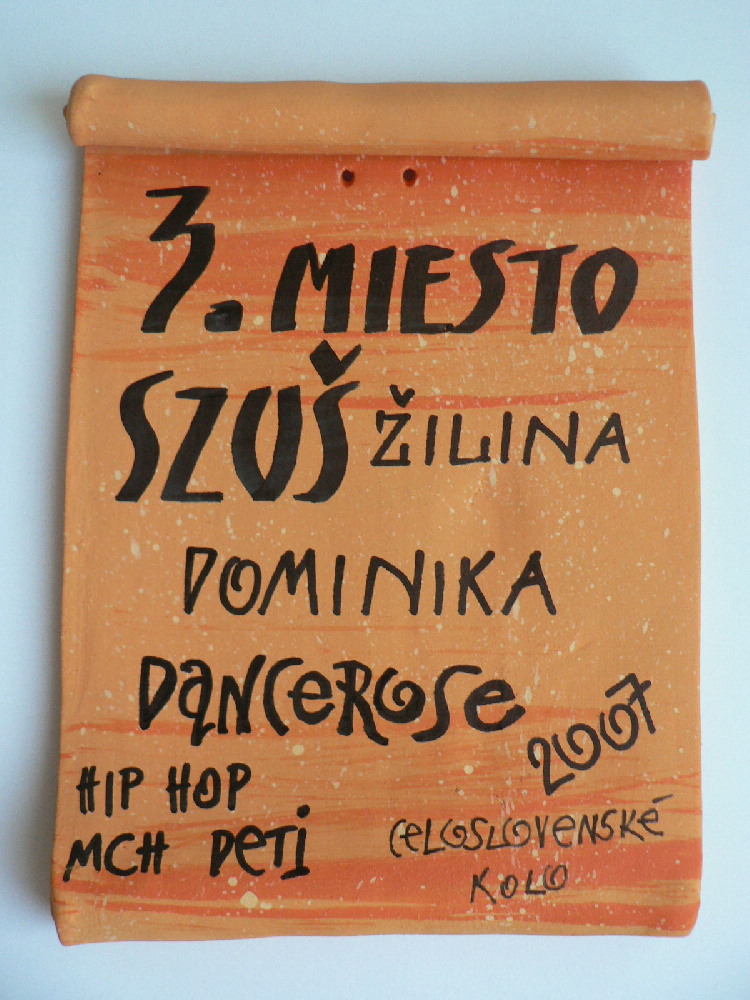 3. MIESTO
SZUŠ ŽILINA
DOMINIKA
DANCEROSE
2007
HIP HOP
MCH DETI
CELOSLOVENSKÉ
KOLO